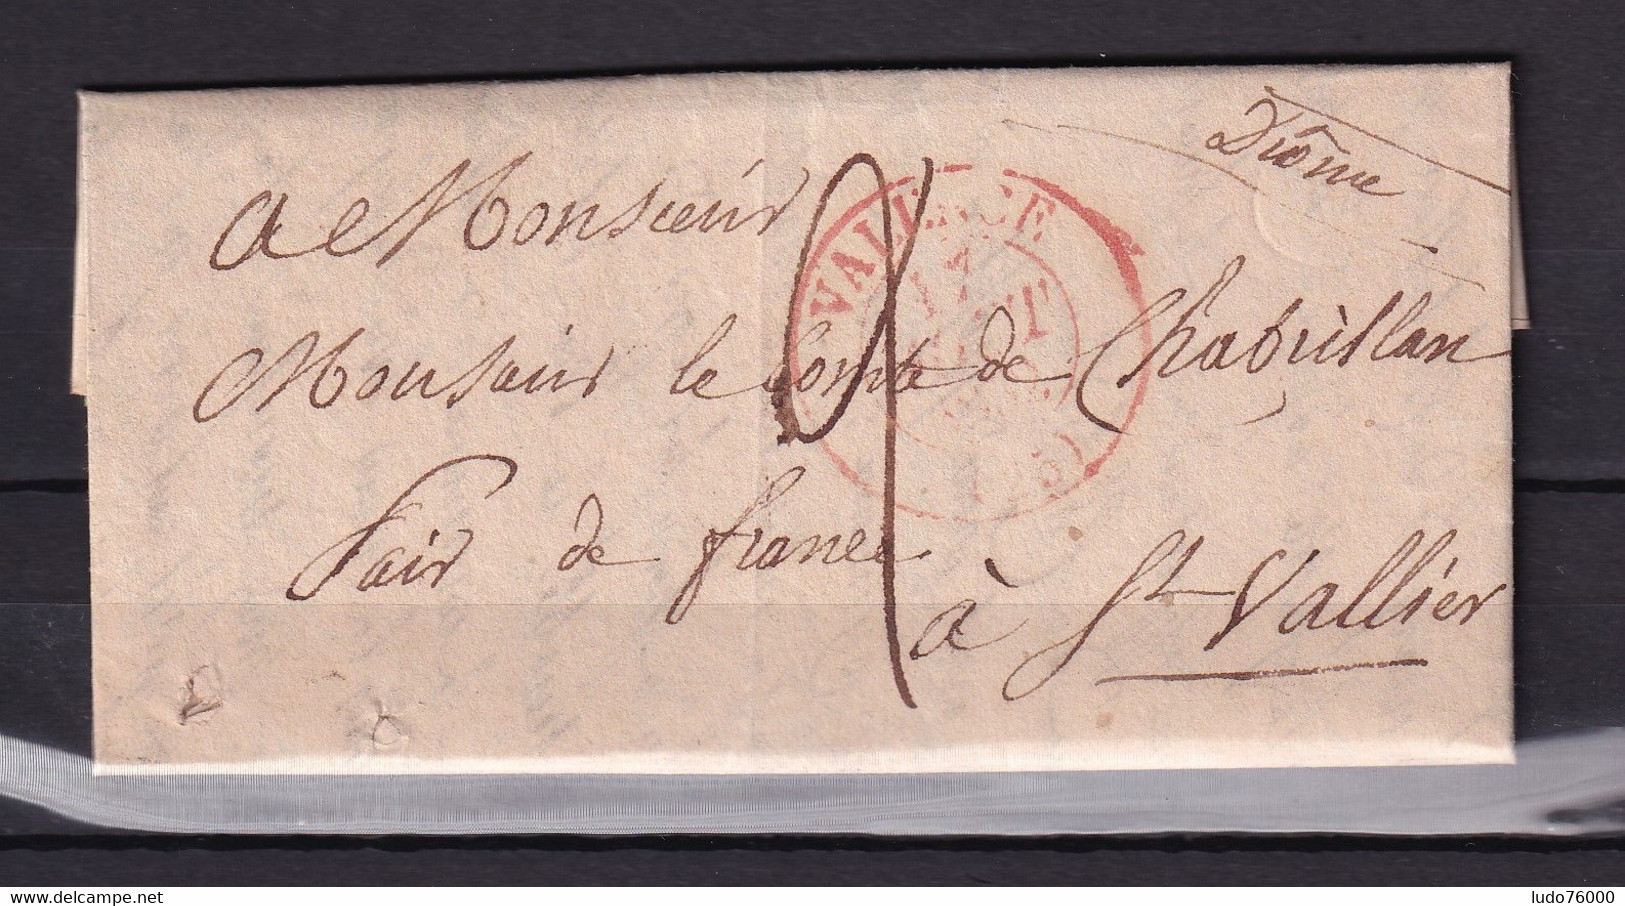 Drôme
A Monsieur
Monsieur le Comte de Chabrillan
Pair de france
à St Vallier
VALENCE
17
(25)
delcampe.net
ludo76000